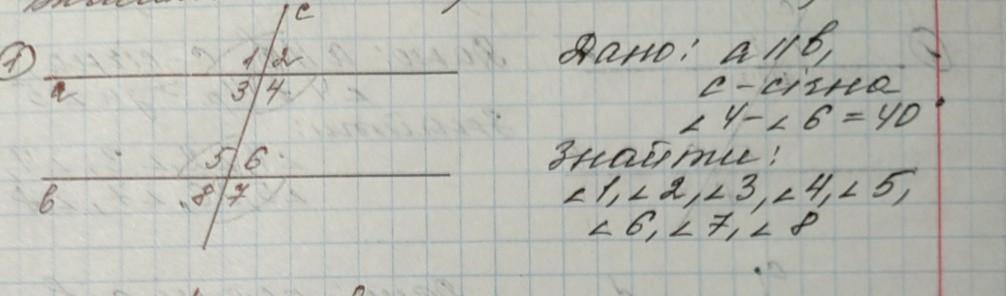 1
c
1 2
a
3 4
5 6
в
8 7
Дано: a || в,
с - січна
∠4 - ∠6 = 40
Знайти:
∠1, ∠2, ∠3, ∠4, ∠5,
∠6, ∠7, ∠8